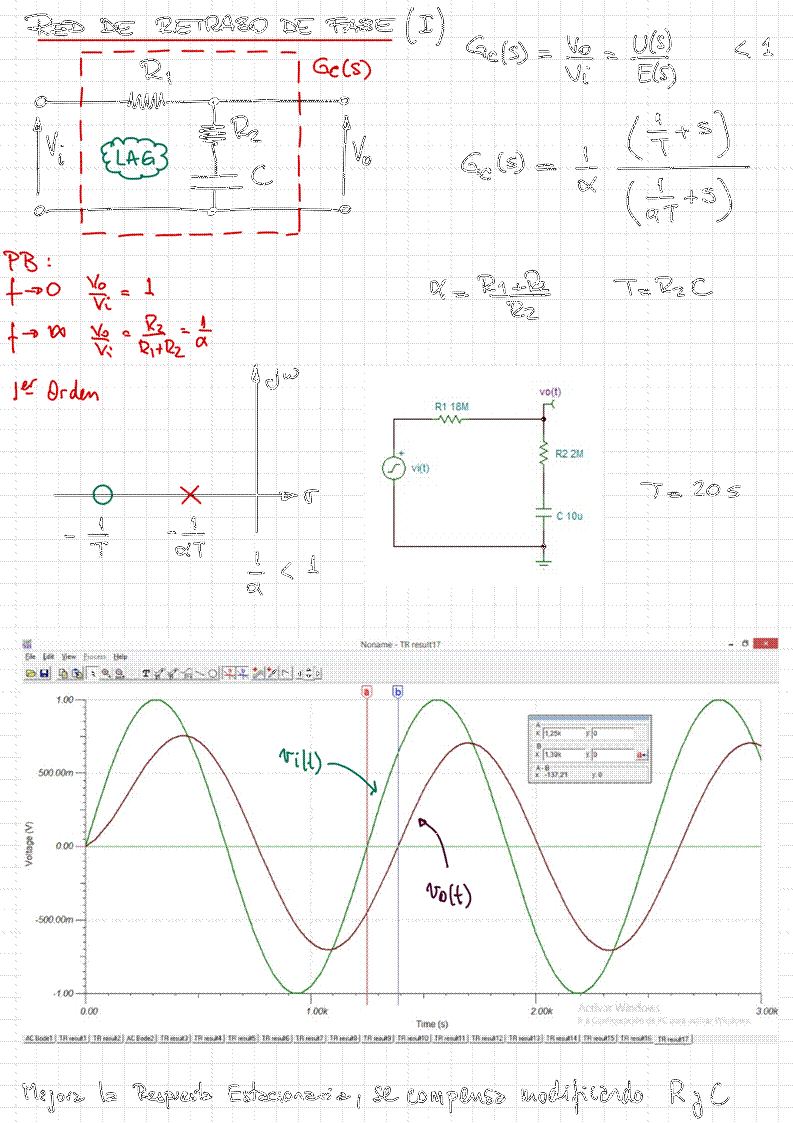 RED DE RETRASO DE FASE (I)
Gc(s) = Vo/Vi = U(s)/E(s) < 1
R1
Gc(s)
R2
Vi
LAG
C
Vo
Gc(s) = 1/α (1/T + s)/(1/αT + s)
PB:
f→0 Vo/Vi = 1
f→∞ Vo/Vi = R2/R1+R2 = 1/α
α = R1+R2/R2 T = R2 C
1er Orden
jω
σ
-1/T
-1/αT
1/α < 1
vo(t)
R1 18M
R2 2M
vi(t)
C 10u
T = 20 s
Noname - TR result17
File Edit View Process Help
a b
1.00
500.00m
0.00
-500.00m
-1.00
Voltage (V)
vi(t)
vo(t)
A
x: 1,25k y: 0
B
x: 1,39k y: 0
A - B
x: -137,21 y: 0
0.00 1.00k 2.00k 3.00k
Time (s)
Activar Windows
AC Bode1 TR result1 TR result2 AC Bode2 TR result3 TR result4 TR result5 TR result6 TR result7 TR result8 TR result9 TR result10 TR result11 TR result12 TR result13 TR result14 TR result15 TR result16 TR result17
Mejora la Respuesta Estacionaria, se compensa modificando R y C